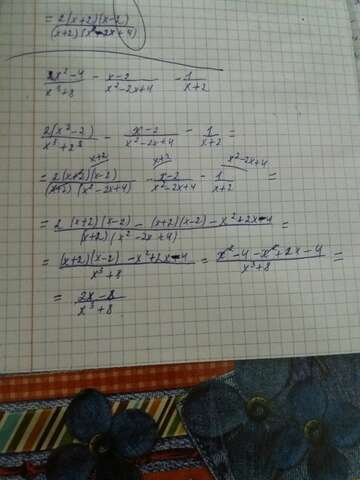 = 2(x+2)(x-2) / (x+2)(x²-2x+4)
2x²-4 / x³+8 - x-2 / x²-2x+4 - 1 / x+2
2(x²-2) / x³+2³ - x-2 / x²-2x+4 - 1 / x+2 =
x+2 x+2 x²-2x+4
= 2(x+2)(x-2) / (x+2)(x²-2x+4) - x-2 / x²-2x+4 - 1 / x+2 =
= 2(x+2)(x-2) - (x+2)(x-2) - x²+2x-4 / (x+2)(x²-2x+4) =
= (x+2)(x-2) - x²+2x-4 / x³+8 = x²-4-x²+2x-4 / x³+8 =
= 2x-8 / x³+8